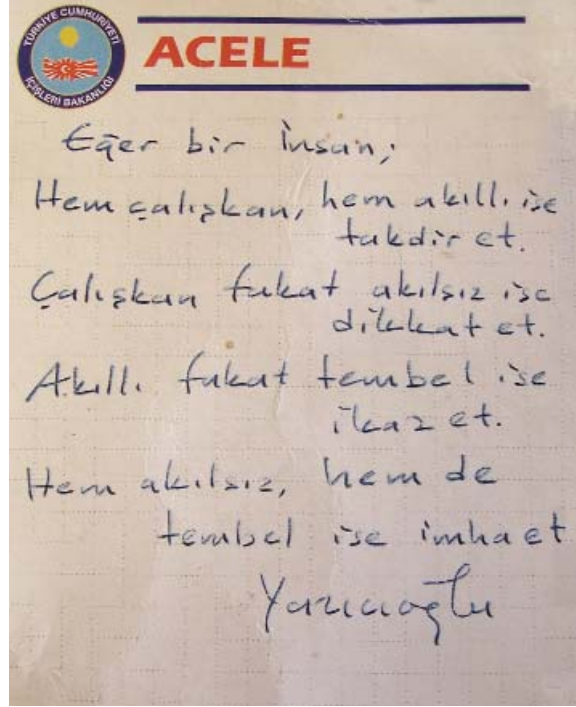 TÜRKİYE CUMHURİYETİ
İÇİŞLERİ BAKANLIĞI
ACELE
Eğer bir İnsan;
Hem çalışkan, hem akıllı ise
takdir et.
Çalışkan fakat akılsız ise
dikkat et.
Akıllı fakat tembel ise
ikaz et.
Hem akılsız, hem de
tembel ise imha et
Yazıcıoğlu